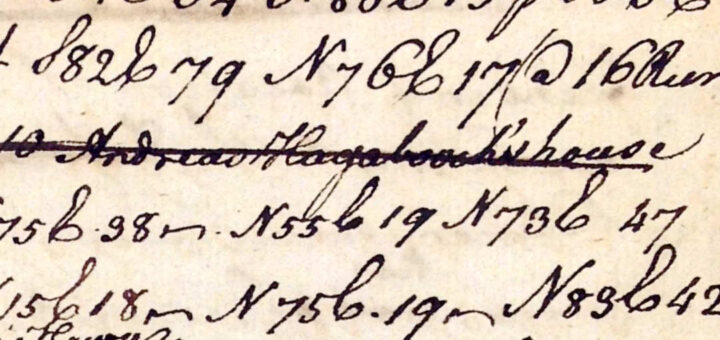 S82E 79 N76E 17 @ 16 Run
to Andreas Hagaboock's house
75E 38 N55E 19 N73E 47
15E 18 N75E. 19 N83E 42